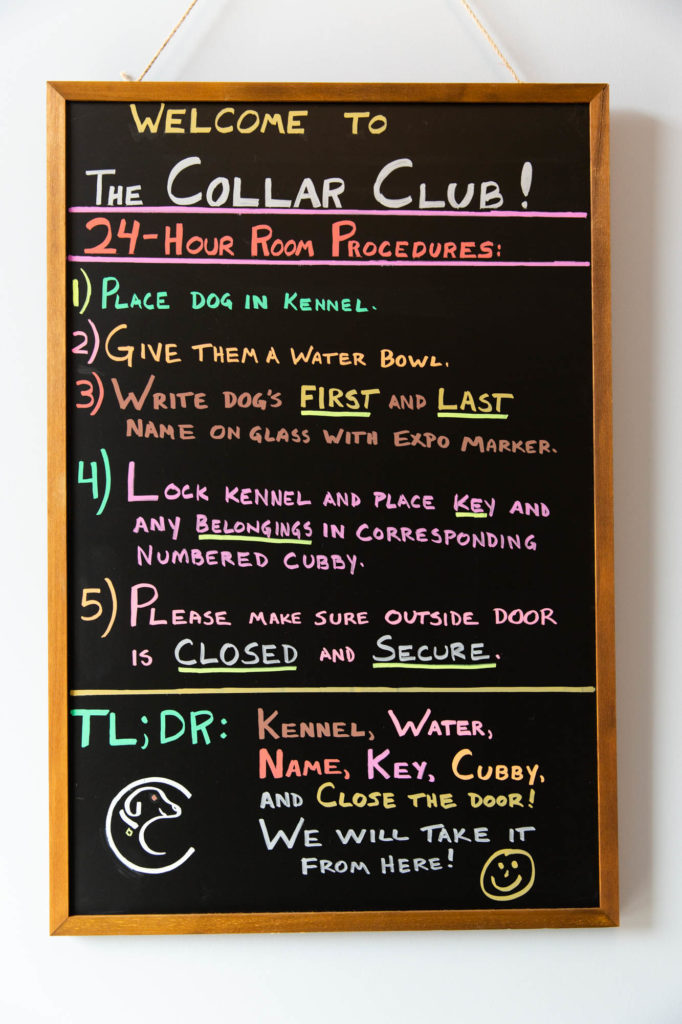 WELCOME TO
THE COLLAR CLUB!
24-HOUR ROOM PROCEDURES:
1) PLACE DOG IN KENNEL.
2) GIVE THEM A WATER BOWL.
3) WRITE DOG'S FIRST AND LAST
NAME ON GLASS WITH EXPO MARKER.
4) LOCK KENNEL AND PLACE KEY AND
ANY BELONGINGS IN CORRESPONDING
NUMBERED CUBBY.
5) PLEASE MAKE SURE OUTSIDE DOOR
IS CLOSED AND SECURE.
TL;DR: KENNEL, WATER,
NAME, KEY, CUBBY,
AND CLOSE THE DOOR!
WE WILL TAKE IT
FROM HERE!